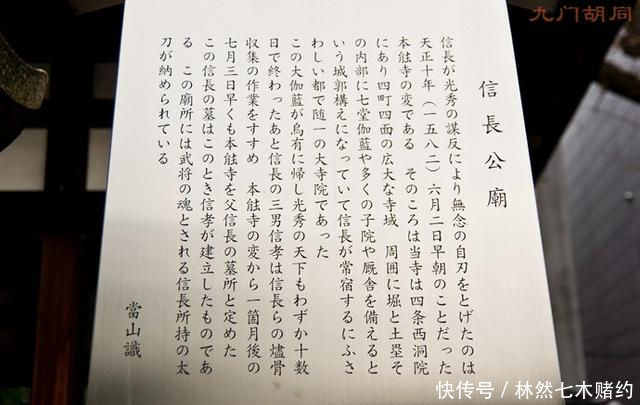 九门胡同
信長公廟
信長が光秀の謀反により無念の自刃をとげたのは
天正十年（一五八二）六月二日早朝のことだった
本能寺の変である　そのころは当寺は四条西洞院
にあり四町四面の広大な寺域　周囲に堀と土塁そ
の内部に七堂伽藍や多くの子院や厩舎を備えると
いう城郭構えになっていて信長が常宿するにふさ
わしい都で随一の大寺院であった
この大伽藍が烏有に帰し光秀の天下もわずか十数
日で終わったあと信長の三男信孝は信長らの燼骨
収集の作業をすすめ　本能寺の変から一箇月後の
七月三日早くも本能寺を父信長の墓所と定めた
この信長の墓はこのとき信孝が建立したものであ
る　この廟所には武将の魂とされる信長所持の太
刀が納められている
當山識
快传号／林然七木赌约